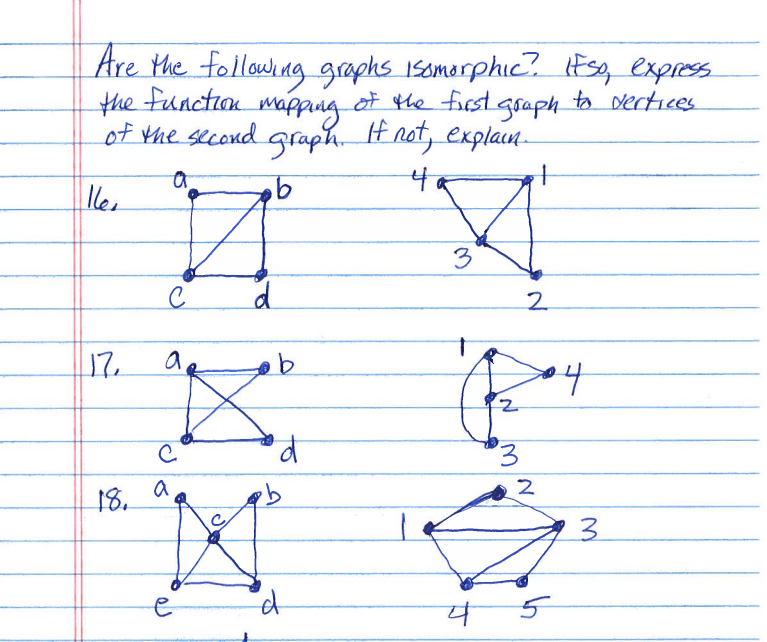 Are the following graphs isomorphic? If so, express
the function mapping of the first graph to vertices
of the second graph. If not, explain.
16.
a b
c d
4 1
3
2
17.
a b
c d
1
4
2
3
18.
a b
c
e d
2
1 3
4 5